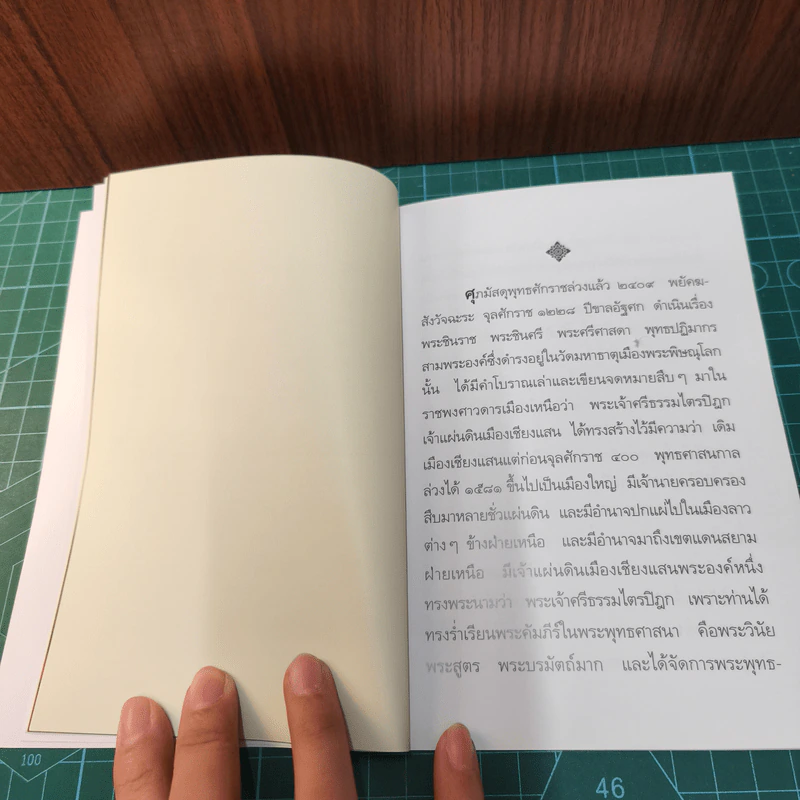 ศุภมัสดุพุทธศักราชล่วงแล้ว ๒๔๐๙ พยัคฆ-
สังวัจฉะระ จุลศักราช ๑๒๒๘ ปีขาลอัฐศก ดำเนินเรื่อง
พระชินราช พระชินศรี พระศรีศาสดา พุทธปฏิมากร
สามพระองค์ซึ่งดำรงอยู่ในวัดมหาธาตุเมืองพระพิษณุโลก
นั้น ได้มีคำโบราณเล่าและเขียนจดหมายสืบ ๆ มาใน
ราชพงศาวดารเมืองเหนือว่า พระเจ้าศรีธรรมไตรปิฎก
เจ้าแผ่นดินเมืองเชียงแสน ได้ทรงสร้างไว้มีความว่า เดิม
เมืองเชียงแสนแต่ก่อนจุลศักราช ๔๐๐ พุทธศาสนกาล
ล่วงได้ ๑๕๘๑ ขึ้นไปเป็นเมืองใหญ่ มีเจ้านายครอบครอง
สืบมาหลายชั่วแผ่นดิน และมีอำนาจปกแผ่ไปในเมืองลาว
ต่าง ๆ ข้างฝ่ายเหนือ และมีอำนาจมาถึงเขตแดนสยาม
ฝ่ายเหนือ มีเจ้าแผ่นดินเมืองเชียงแสนพระองค์หนึ่ง
ทรงพระนามว่า พระเจ้าศรีธรรมไตรปิฎก เพราะท่านได้
ทรงร่ำเรียนพระคัมภีร์ในพระพุทธศาสนา คือพระวินัย
พระสูตร พระบรมัตถ์มาก และได้จัดการพระพุทธ-
100
46